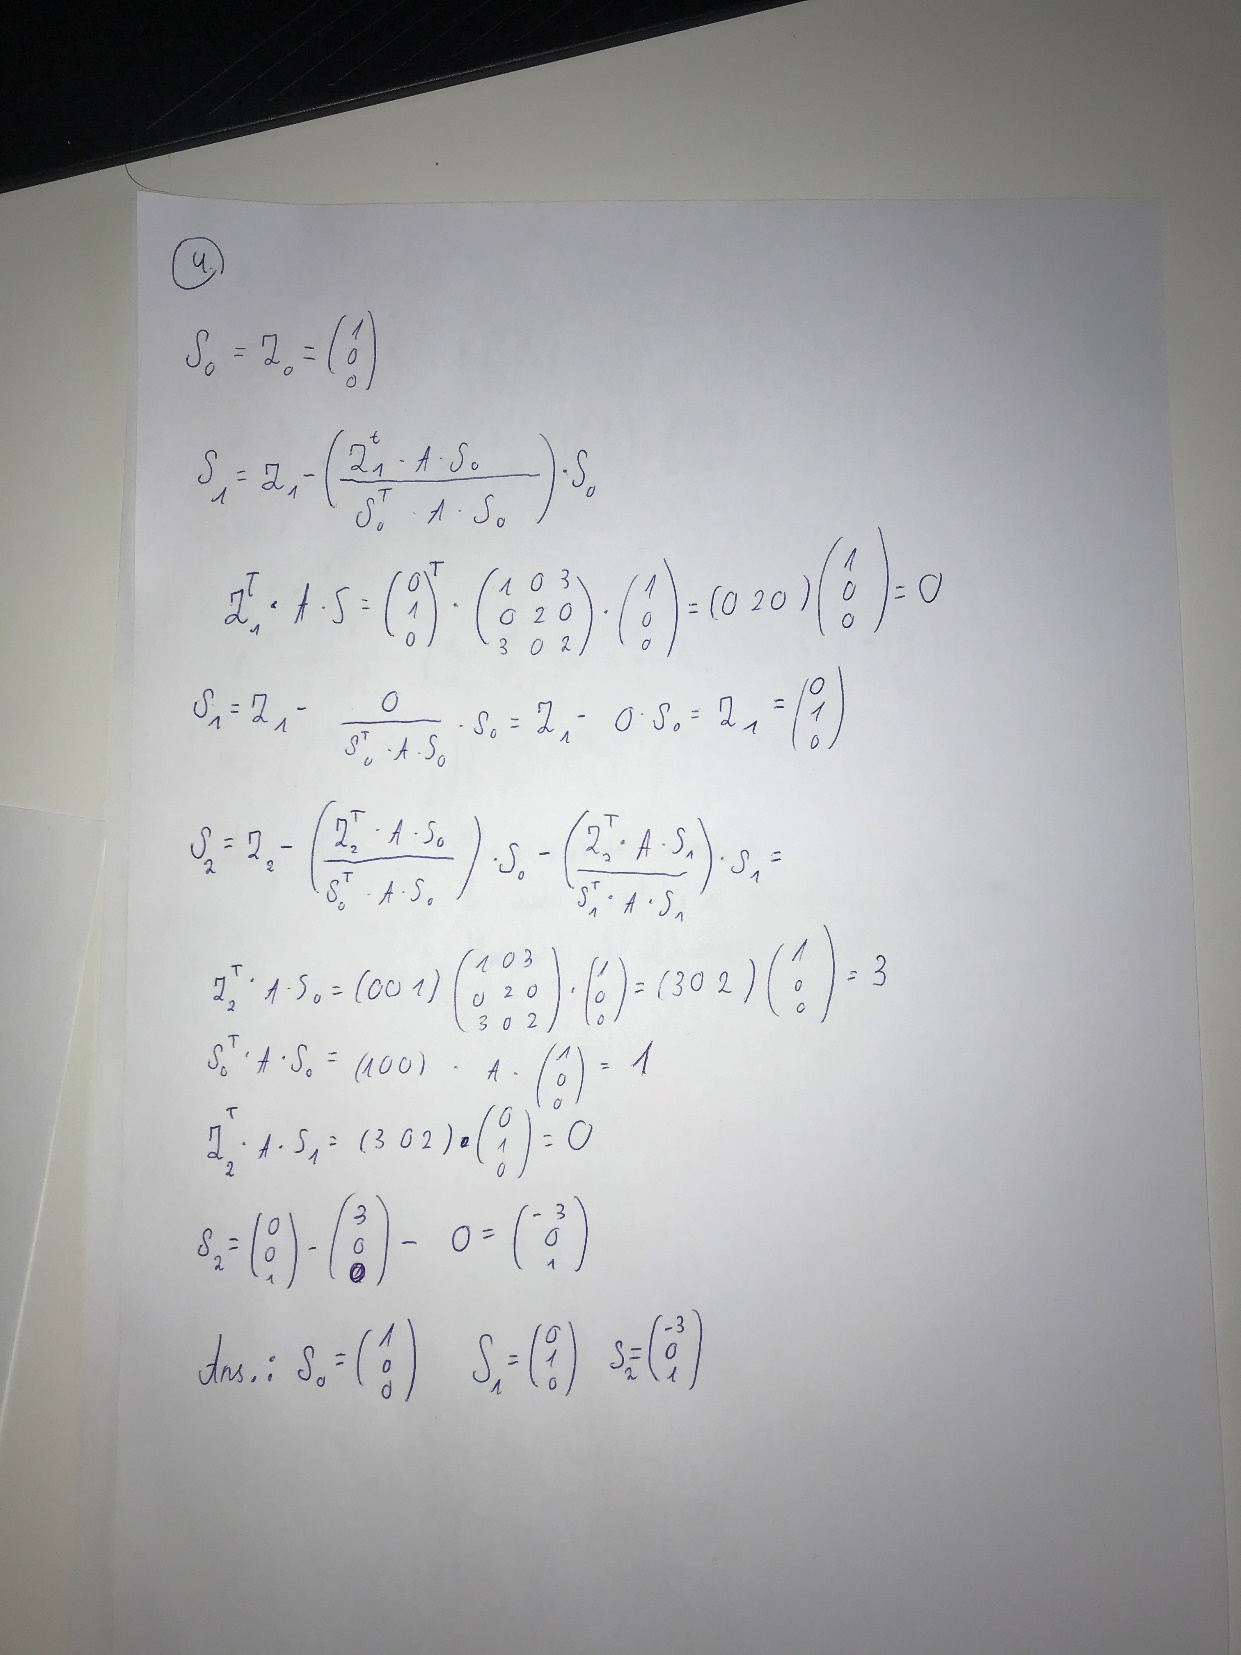 4.
S₀ = Z₀ = (1 0 0)
S₁ = Z₁ - (Z₁ᵗ · A · S₀ / S₀ᵀ · A · S₀) · S₀
Z₁ᵀ · A · S = (0 1 0)ᵀ · (1 0 3 0 2 0 3 0 2) · (1 0 0) = (0 2 0) (1 0 0) = 0
S₁ = Z₁ - 0 / S₀ᵀ · A · S₀ · S₀ = Z₁ - 0 · S₀ = Z₁ = (0 1 0)
S₂ = Z₂ - (Z₂ᵀ · A · S₀ / S₀ᵀ · A · S₀) · S₀ - (Z₂ᵀ · A · S₁ / S₁ᵀ · A · S₁) · S₁ =
Z₂ᵀ · A · S₀ = (0 0 1) (1 0 3 0 2 0 3 0 2) · (1 0 0) = (3 0 2) (1 0 0) = 3
S₀ᵀ · A · S₀ = (1 0 0) · A · (1 0 0) = 1
Z₂ᵀ · A · S₁ = (3 0 2) · (0 1 0) = 0
S₂ = (0 0 1) - (3 0 0) - 0 = (-3 0 1)
Ans.: S₀ = (1 0 0) S₁ = (0 1 0) S₂ = (-3 0 1)